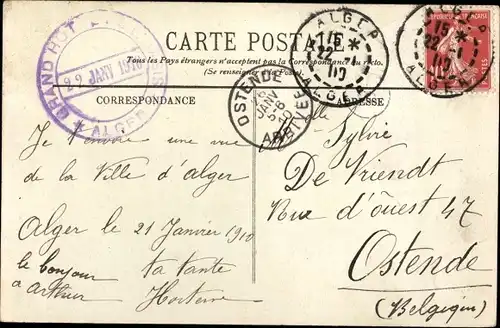 CARTE POSTALE
Tous les Pays étrangers n'acceptent pas la Correspondance au recto.
(Se renseigner
GRAND HOT
22 JANV 1910
ALGER
OSTENDE
JANV
ARRIVÉE
ALGER
15
22
10
ALGER
ALGER
15
22
10
ALGER
CORRESPONDANCE
ADRESSE
Je t'envoie une vue
de la Ville d'alger
Alger le 21 Janvier 1910
le bonjour
a arthur
ta tante
Hortense
Sylvie
De Vriendt
Rue d'ouest 47
Ostende
(Belgique)